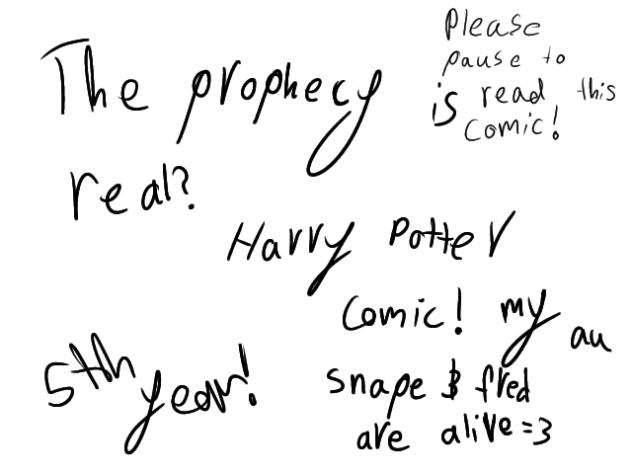 The prophecy is
real?
Please
pause to
read this
Comic!
Harry Potter
Comic! my au
5th year!
snape & fred
are alive =3